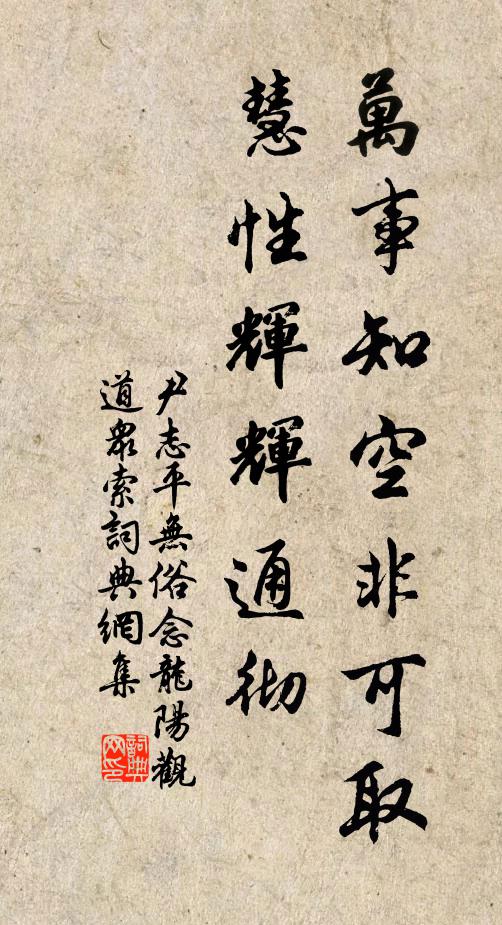 萬事知空非可取
慧性輝輝通徹
尹志平無俗念龍陽觀
道眾索詞典網集
詞典
网印